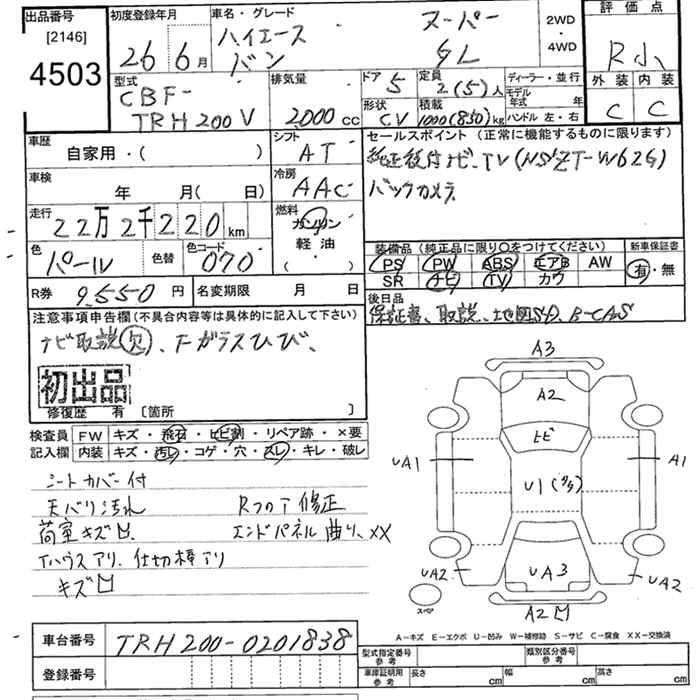 出品番号
[2146]
4503
初度登録年月
26 6月
車名・グレード
ハイエース
バン
スーパー
GL
2WD
・
4WD
評価点
R小
外装 内装
C C
型式
CBF-
TRH200V
排気量
2000cc
ドア 5 定員 2(5)人
ディーラー・並行
モデル年式 年
形状 CV 積載 1000(850)kg
ハンドル 左・右
車歴
自家用・( )
シフト
AT
セールスポイント (正常に機能するものに限ります)
純正後付ナビ、TV(NSZT-W62G)
バックカメラ
車検
年 月(日)
冷房
AAC
走行
22万2千220km
燃料
ガソリン
軽油
( ・ )
色
パール
色替
色コード
070
装備品(純正品に限り〇をつけてください)
新車保証書
PS PW ABS エアB AW
SR ナビ TV カワ
有・無
R券 9,550円
名変期限 月 日
後日品
保証書、取説、地図SD、B-CAS
注意事項申告欄(不具合内容等は具体的に記入して下さい)
ナビ取説欠、Fガラスひび、
初出品
修復歴 有 〔箇所 〕
検査員
記入欄
FW キズ・飛石・ヒビ割・リペア跡・×要
内装 キズ・汚レ・コゲ・穴・スレ・キレ・破レ
シートカバー付
天バリ汚れ
荷室キズ凹
Tハウスアリ.仕切棒アリ
キズ凹
Rフロア修正
エンドパネル曲り、XX
A3
A2
ヒビ
UA1
A1
U1
UA2
UA3
UA2
スペア
A2凹
A-キズ E-エクボ U-凹み W-補修跡 S-サビ C-腐食 XX-交換済
車台番号
TRH200-0201838
登録番号
型式指定番号
参考
類別区分番号
参考
車庫証明用
参考
長さ cm
幅 cm
高さ cm